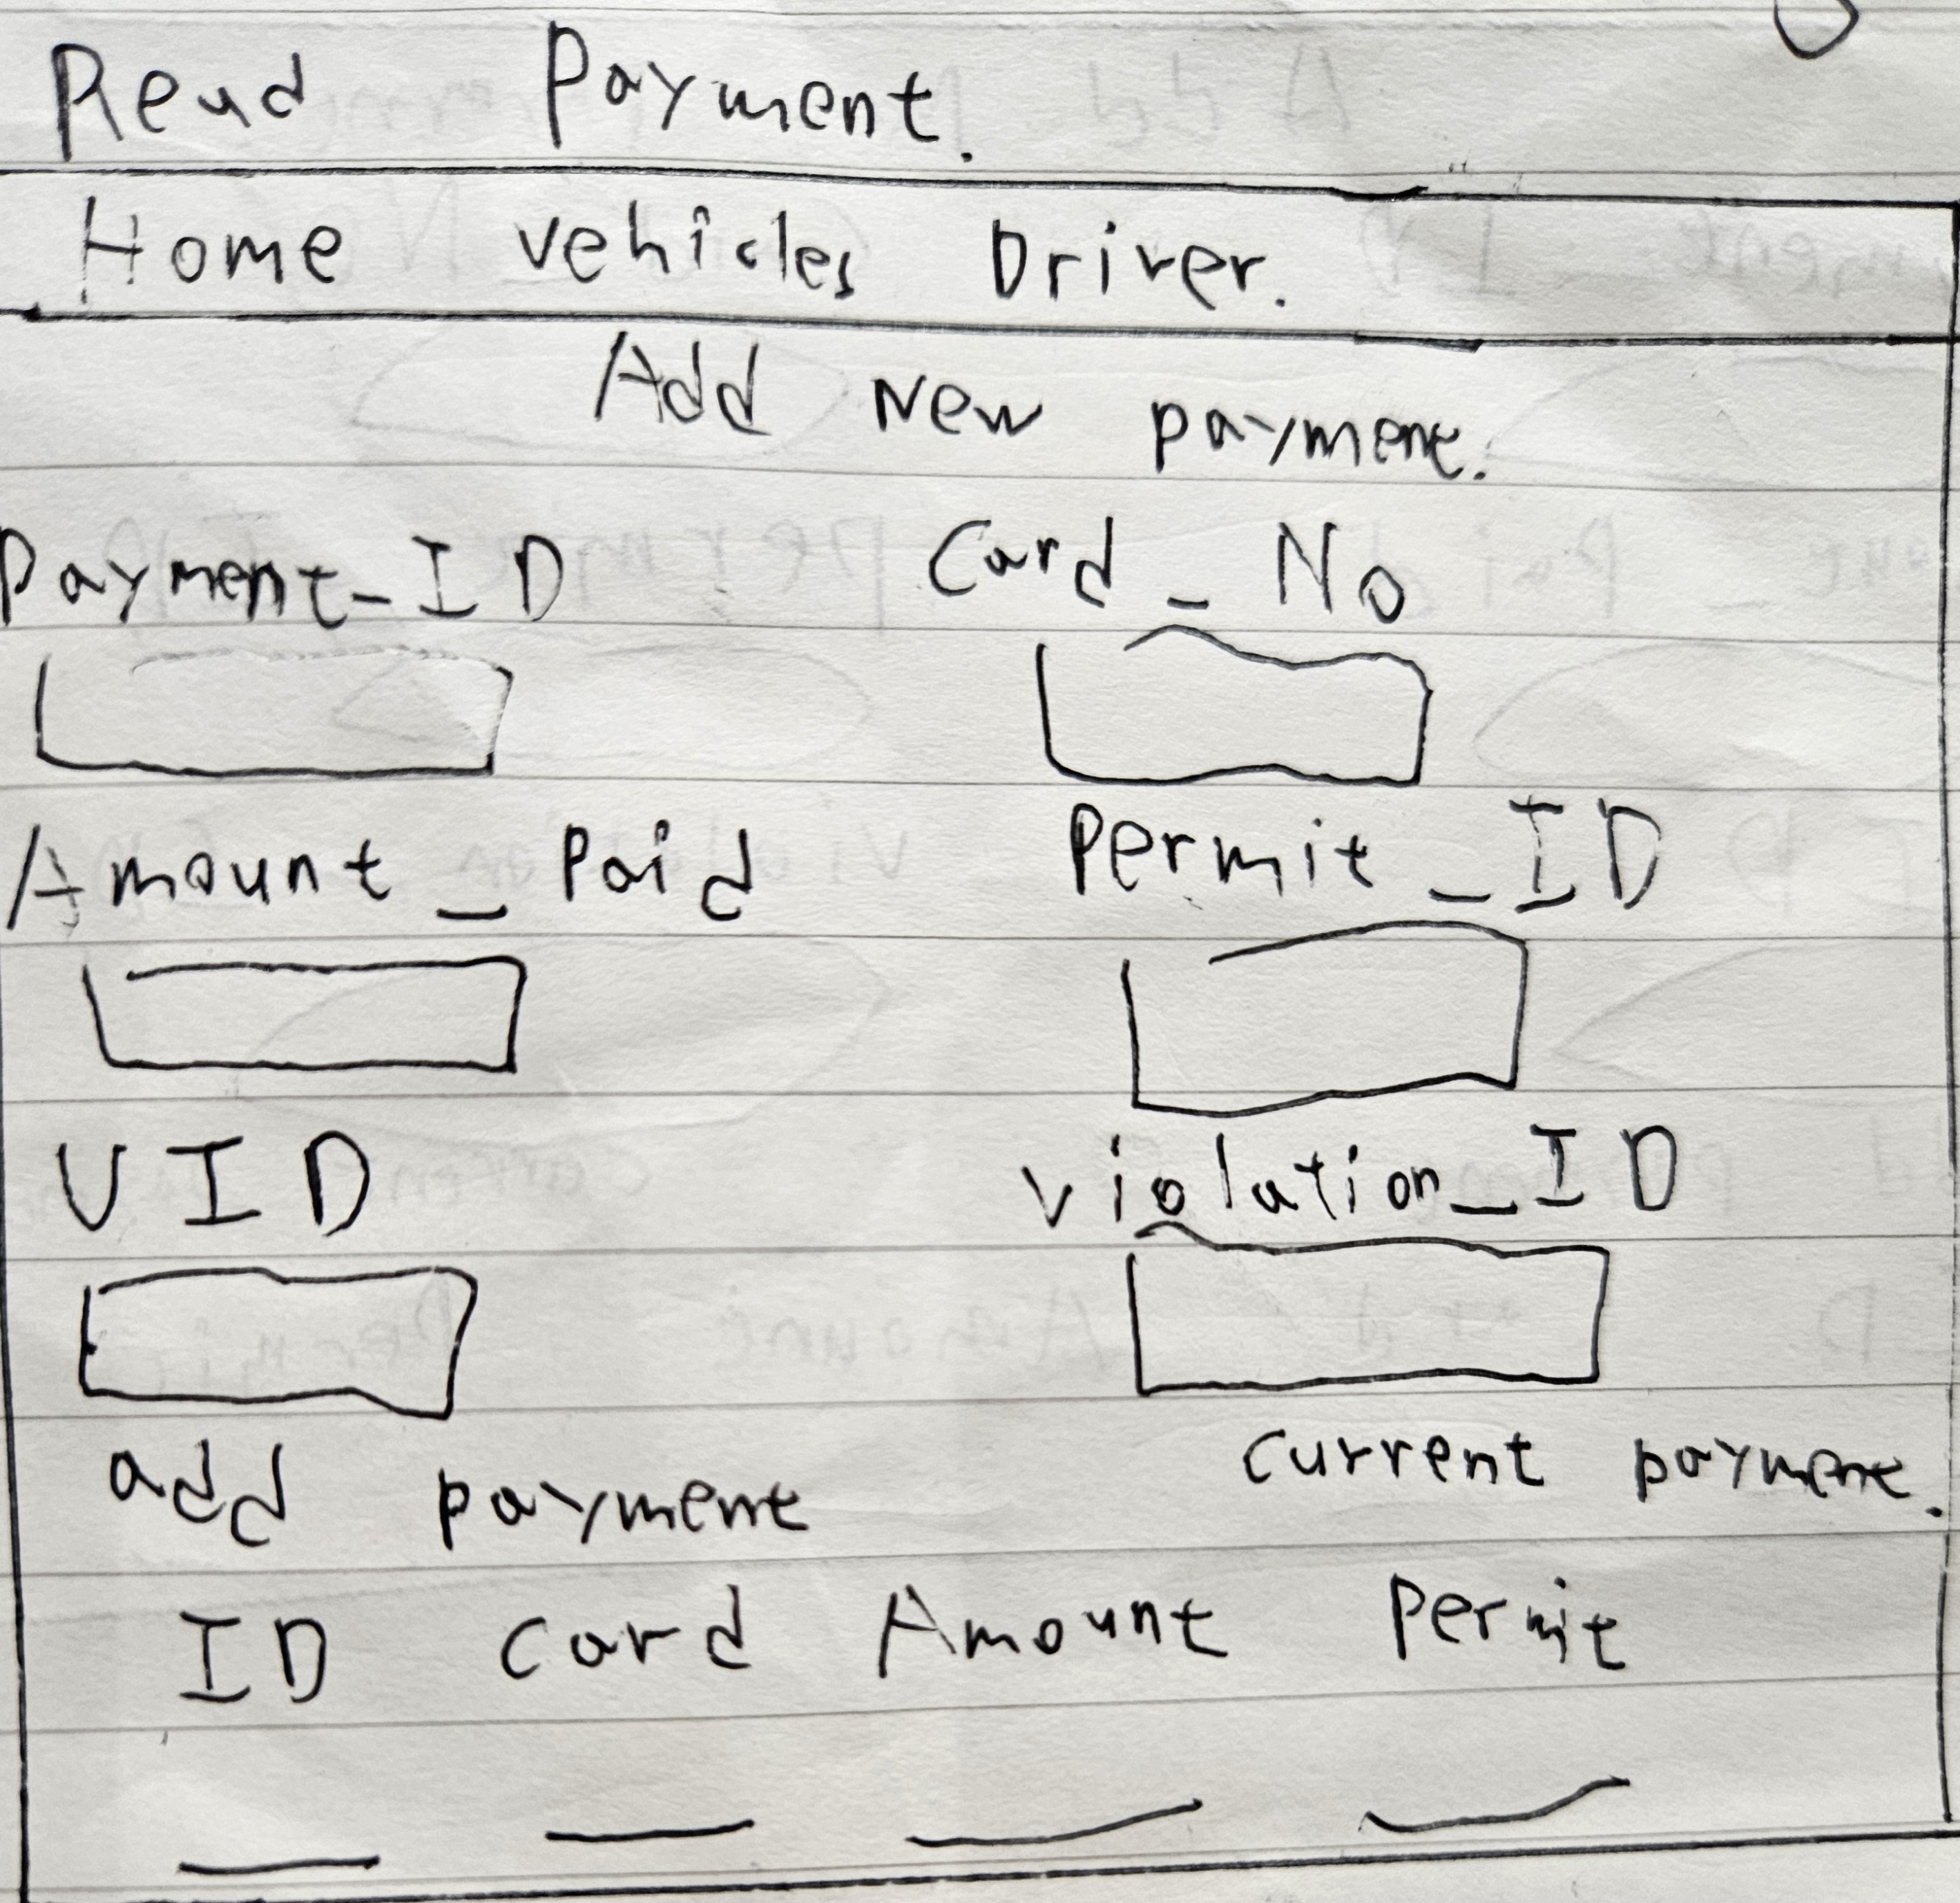 Read Payment.
Home vehicles Driver.
Add New payment.
Payment_ID Card_No
Amount_Paid Permit_ID
UID violation_ID
add payment current payment.
ID card Amount Permit